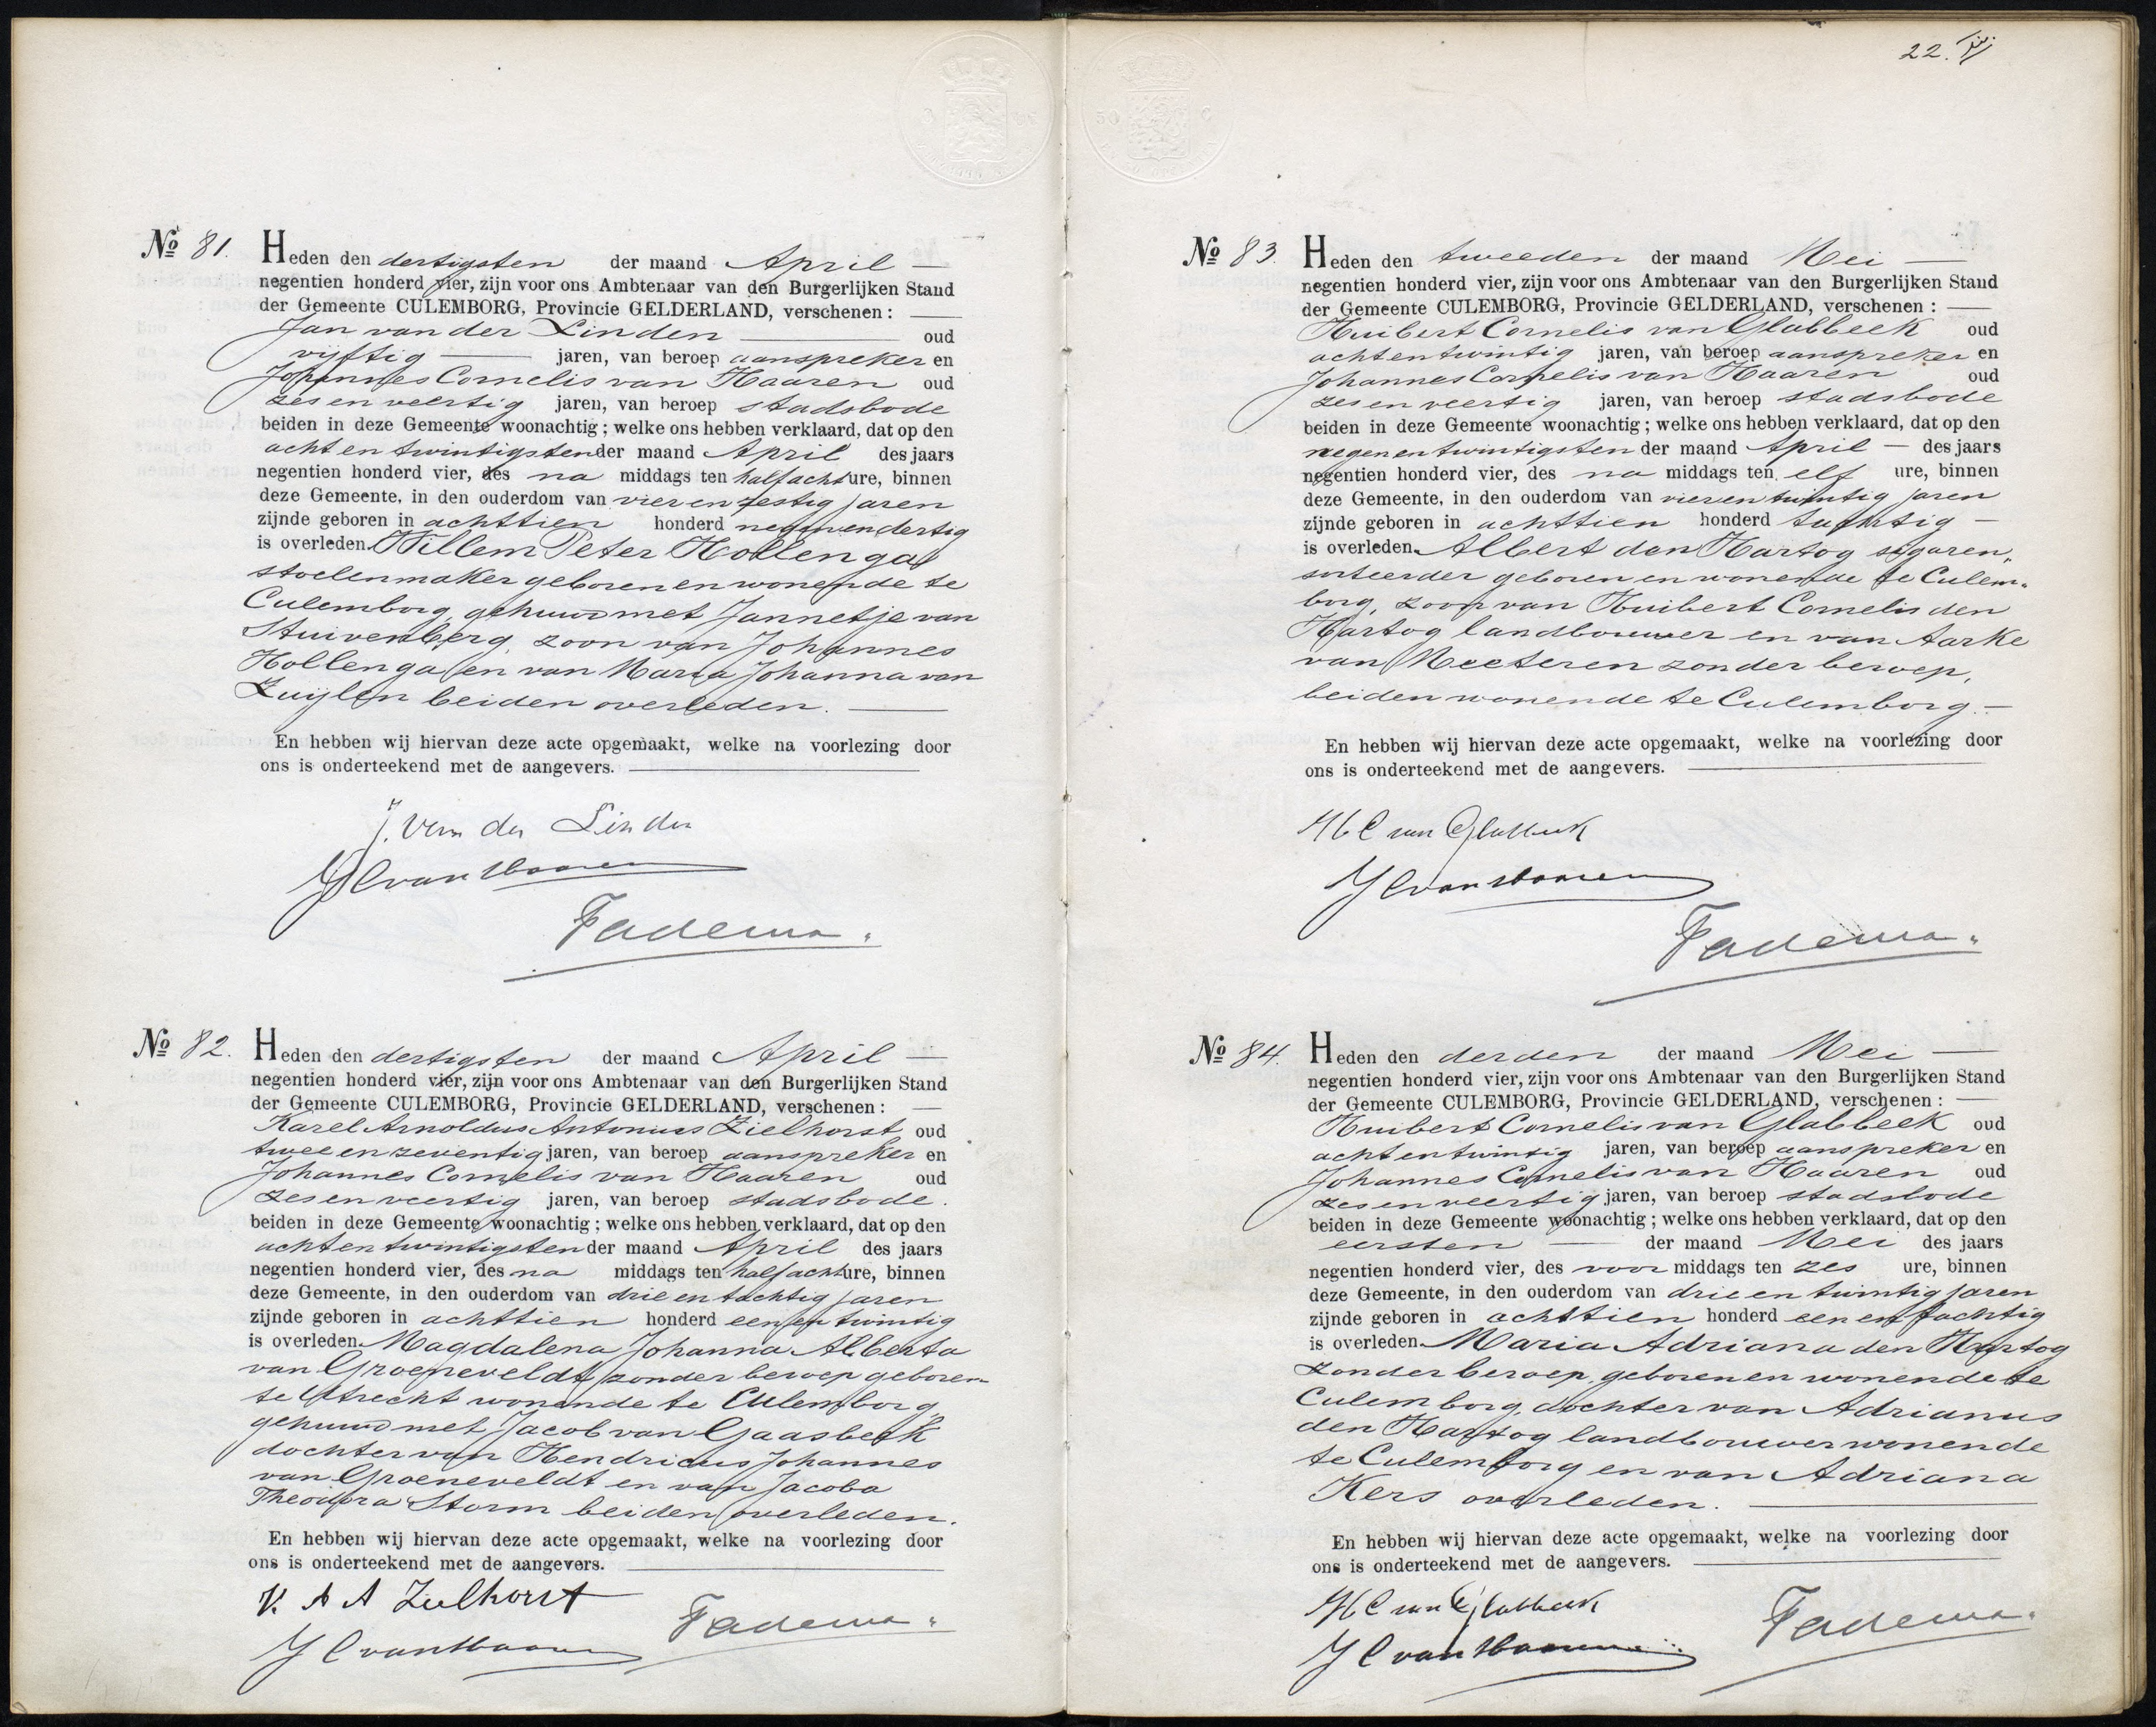 22.
No 81. Heden den dertigsten der maand April —
negentien honderd vier, zijn voor ons Ambtenaar van den Burgerlijken Stand
der Gemeente CULEMBORG, Provincie GELDERLAND, verschenen: —
Jan van der Linden — oud
vijftig — jaren, van beroep aanspreker en
Johannes Cornelis van Haaren oud
zes en veertig jaren, van beroep stadsbode
beiden in deze Gemeente woonachtig; welke ons hebben verklaard, dat op den
acht en twintigsten der maand April des jaars
negentien honderd vier, des na middags ten half acht ure, binnen
deze Gemeente, in den ouderdom van vier en zestig jaren
zijnde geboren in achttien honderd negenendertig
is overleden Willem Peter Hollenga
stoelenmaker geboren en wonende te
Culemborg, gehuwd met Jannetje van
Stuivenberg, zoon van Johannes
Hollenga en van Maria Johanna van
Zuijlen beiden overleden. —
En hebben wij hiervan deze acte opgemaakt, welke na voorlezing door
ons is onderteekend met de aangevers. —
J. van der Linden
J C van Haaren
Fadema.
No 82. Heden den dertigsten der maand April —
negentien honderd vier, zijn voor ons Ambtenaar van den Burgerlijken Stand
der Gemeente CULEMBORG, Provincie GELDERLAND, verschenen: —
Karel Arnoldus Antonius Zielhorst oud
twee en zeventig jaren, van beroep aanspreker en
Johannes Cornelis van Haaren oud
zes en veertig jaren, van beroep stadsbode.
beiden in deze Gemeente woonachtig; welke ons hebben verklaard, dat op den
acht en twintigsten der maand April des jaars
negentien honderd vier, des na middags ten half acht ure, binnen
deze Gemeente, in den ouderdom van drie en tachtig jaren
zijnde geboren in achttien honderd een en twintig
is overleden Magdalena Johanna Alberta
van Groeneveldt zonder beroep geboren
te Utrecht wonende te Culemborg,
gehuwd met Jacob van Gaasbeek
dochter van Hendricus Johannes
van Groeneveldt en van Jacoba
Theodora Storm beiden overleden.
En hebben wij hiervan deze acte opgemaakt, welke na voorlezing door
ons is onderteekend met de aangevers. —
K. A A Zielhorst
J C van Haaren
Fadema.
No 83. Heden den tweeden der maand Mei —
negentien honderd vier, zijn voor ons Ambtenaar van den Burgerlijken Stand
der Gemeente CULEMBORG, Provincie GELDERLAND, verschenen: —
Huibert Cornelis van Glabbeek oud
acht en twintig jaren, van beroep aanspreker en
Johannes Cornelis van Haaren oud
zes en veertig jaren, van beroep stadsbode
beiden in deze Gemeente woonachtig; welke ons hebben verklaard, dat op den
negen en twintigsten der maand April — des jaars
negentien honderd vier, des na middags ten elf ure, binnen
deze Gemeente, in den ouderdom van vier en twintig jaren
zijnde geboren in achttien honderd tachtig —
is overleden Albert den Hartog sigaren„
sorteerder geboren en wonende te Culem„
borg, zoon van Huibert Cornelis den
Hartog landbouwer en van Aarke
van Meeteren zonder beroep,
beiden wonende te Culemborg. —
En hebben wij hiervan deze acte opgemaakt, welke na voorlezing door
ons is onderteekend met de aangevers. —
H C van Glabbeek
J C van Haaren
Fadema.
No 84. Heden den derden der maand Mei —
negentien honderd vier, zijn voor ons Ambtenaar van den Burgerlijken Stand
der Gemeente CULEMBORG, Provincie GELDERLAND, verschenen: —
Huibert Cornelis van Glabbeek oud
acht en twintig jaren, van beroep aanspreker en
Johannes Cornelis van Haaren oud
zes en veertig jaren, van beroep stadsbode
beiden in deze Gemeente woonachtig; welke ons hebben verklaard, dat op den
eersten — der maand Mei des jaars
negentien honderd vier, des voor middags ten zes ure, binnen
deze Gemeente, in den ouderdom van drie en twintig jaren
zijnde geboren in achttien honderd een en tachtig
is overleden Maria Adriana den Hartog
zonder beroep, geboren en wonende te
Culemborg, dochter van Adrianus
den Hartog landbouwer wonende
te Culemborg en van Adriana
Kers overleden. —
En hebben wij hiervan deze acte opgemaakt, welke na voorlezing door
ons is onderteekend met de aangevers. —
H C van Glabbeek
J C van Haaren
Fadema.